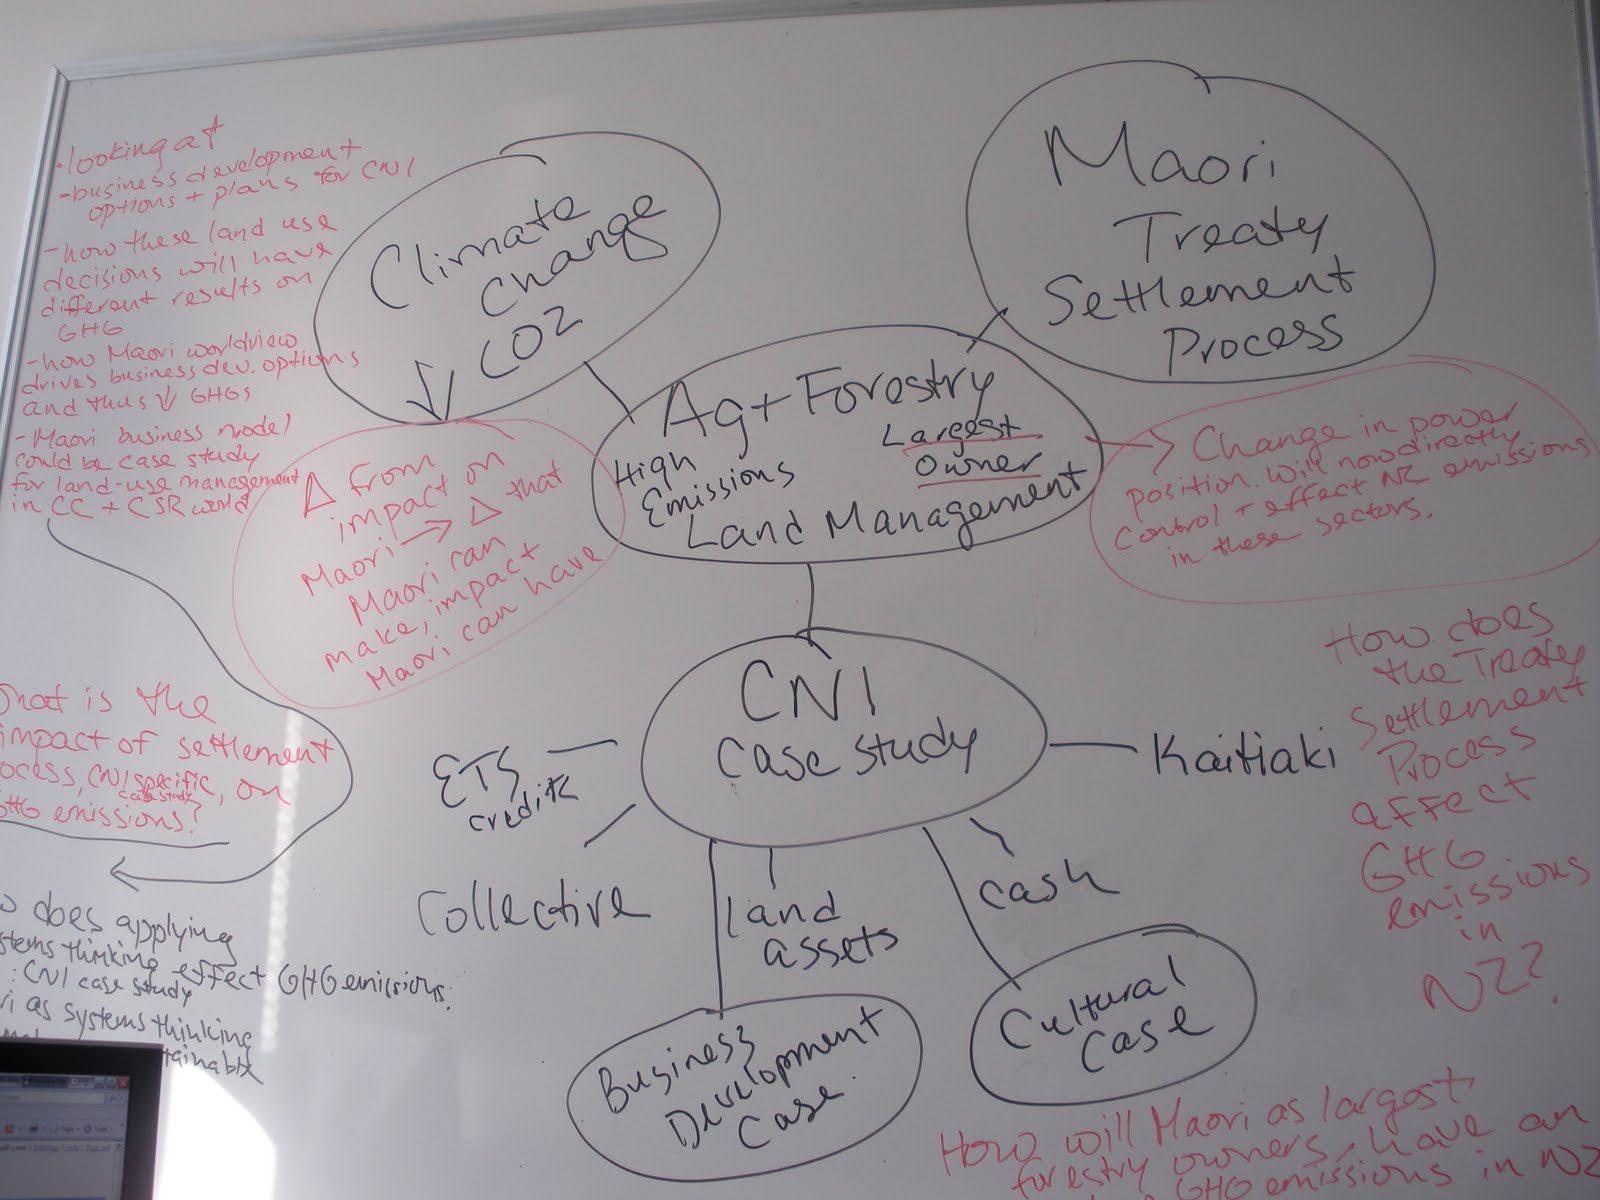 • looking at
- business development
options + plans for CNI
- how these land use
decisions will have
different results on
GHG
- how Maori worldview
drives business dev. options
and thus ↓ GHGs
- Maori business model
could be case study
for land-use management
in CC + CSR world
Climate
Change
↓ CO2
Maori
Treaty
Settlement
Process
Ag + Forestry
Largest
Owner
High
Emissions
Land Management
→ Change in power
position. Will now directly
control + effect NZ emissions
in these sectors.
Δ from
impact on
Maori → Δ that
Maori can
make, impact
Maori can have
What is the
impact of settlement
process, CNI specific, on
case study
GHG emissions?
does applying
systems thinking effect GHG emissions
: CNI case study
as systems thinking
CNI
Case study
ETS
credits
Collective
land
assets
cash
Kaitiaki
Business
Development
Case.
Cultural
Case
How does
the Treaty
Settlement
Process
affect
GHG
emissions
in
NZ?
How will Maori as largest
forestry owners, have an
GHG emissions in NZ